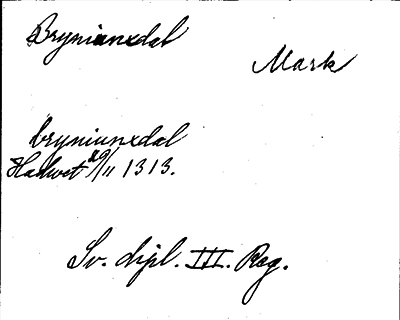 Bryniunxdal
Mark
bryniunxdal
29/11 1313.
Sv. dipl. III. Reg.